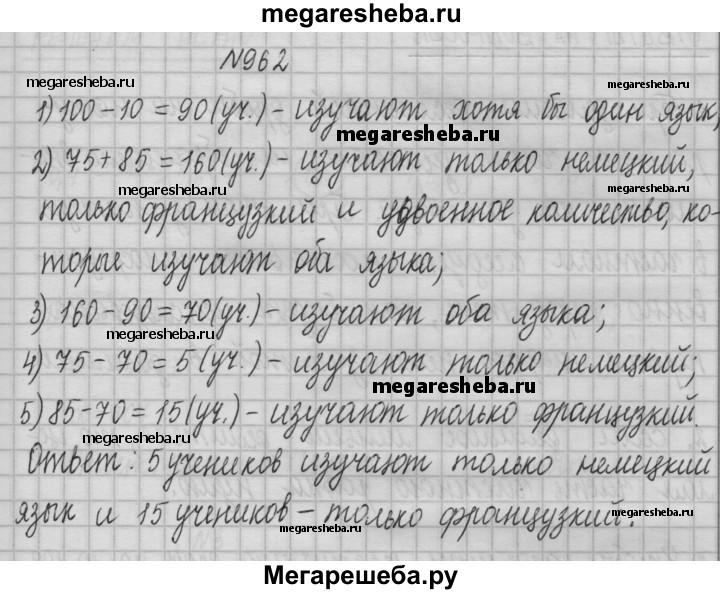 megaresheba.ru
№962
megaresheba.ru
megaresheba.ru
1) 100 - 10 = 90 (уч.) - изучают хотя бы один язык,
megaresheba.ru
2) 75 + 85 = 160 (уч.) - изучают только немецкий,
megaresheba.ru
megaresheba.ru
только французкий и удвоенное количество, ко-
торые изучают оба языка;
3) 160 - 90 = 70 (уч.) - изучают оба языка;
megaresheba.ru
4) 75 - 70 = 5 (уч.) - изучают только немецкий;
megaresheba.ru
5) 85 - 70 = 15 (уч.) - изучают только французкий.
megaresheba.ru
Ответ: 5 учеников изучают только немецкий
язык и 15 учеников - только французкий.
megaresheba.ru
megaresheba.ru
Мегарешеба.ру